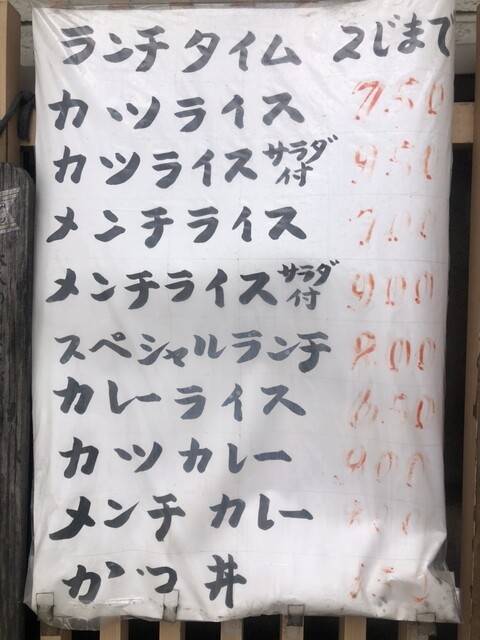 ランチタイム 2じまで
カツライス 750
カツライス サラダ付 950
メンチライス 700
メンチライス サラダ付 900
スペシャルランチ 800
カレーライス 650
カツカレー 900
メンチカレー
かつ丼